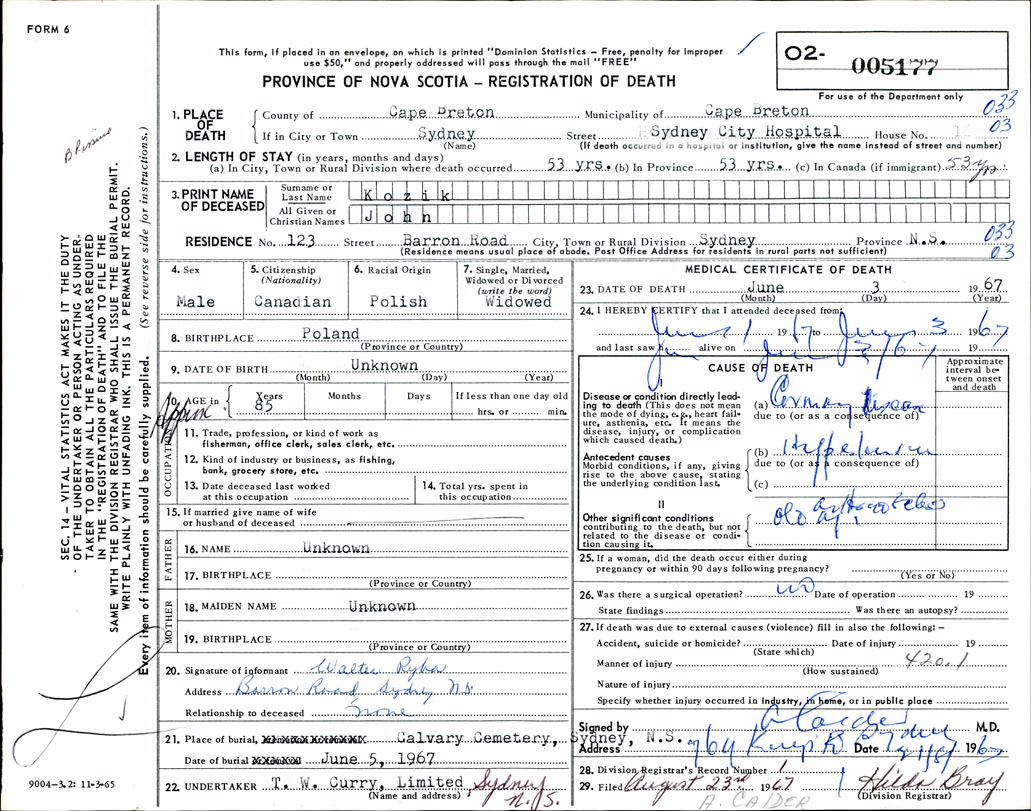 FORM 6
This form, if placed in an envelope, on which is printed "Dominion Statistics – Free, penalty for improper
use $50," and properly addressed will pass through the mail "FREE"
PROVINCE OF NOVA SCOTIA – REGISTRATION OF DEATH
O2- 005177
For use of the Department only
1. PLACE OF DEATH
County of Cape Breton Municipality of Cape Breton 033
If in City or Town Sydney Street Sydney City Hospital House No. 03
(Name) (If death occurred in a hospital or institution, give the name instead of street and number)
2. LENGTH OF STAY (in years, months and days)
(a) In City, Town or Rural Division where death occurred 53 yrs. (b) In Province 53 yrs. (c) In Canada (if immigrant) 53 yrs.
3. PRINT NAME OF DECEASED
Surname or Last Name Kozik
All Given or Christian Names John
RESIDENCE No. 123 Street Barron Road City, Town or Rural Division Sydney Province N.S. 033
(Residence means usual place of abode. Post Office Address for residents in rural parts not sufficient) 03
4. Sex Male
5. Citizenship (Nationality) Canadian
6. Racial Origin Polish
7. Single, Married, Widowed or Divorced (write the word) Widowed
8. BIRTHPLACE Poland
(Province or Country)
9. DATE OF BIRTH Unknown
(Month) (Day) (Year)
10. AGE in Approx. Years 85 Months Days If less than one day old hrs. or min.
OCCUPATION
11. Trade, profession, or kind of work as
fisherman, office clerk, sales clerk, etc.
12. Kind of industry or business, as fishing,
bank, grocery store, etc.
13. Date deceased last worked
at this occupation
14. Total yrs. spent in
this occupation
15. If married give name of wife
or husband of deceased
FATHER
16. NAME Unknown
17. BIRTHPLACE
(Province or Country)
MOTHER
18. MAIDEN NAME Unknown
19. BIRTHPLACE
(Province or Country)
20. Signature of informant Walter Ryba
Address Barron Road, Sydney N.S.
Relationship to deceased none
21. Place of burial, Calvary Cemetery, Sydney, N.S.
Date of burial June 5, 1967
22. UNDERTAKER T. W. Curry, Limited Sydney N.S.
(Name and address)
MEDICAL CERTIFICATE OF DEATH
23. DATE OF DEATH June 3 1967
(Month) (Day) (Year)
24. I HEREBY CERTIFY that I attended deceased from
June 1 1967 to June 3 1967
and last saw him alive on June 3/67 19
CAUSE OF DEATH
Approximate interval between onset and death
I
Disease or condition directly leading
to death (This does not mean
the mode of dying, e.g., heart failure,
asthenia, etc. It means the
disease, injury, or complication
which caused death.)
(a) Coronary
due to (or as a consequence of)
Antecedent causes
Morbid conditions, if any, giving
rise to the above cause, stating
the underlying condition last.
(b) Hypertension
due to (or as a consequence of)
(c)
II
Other significant conditions
contributing to the death, but not
related to the disease or condition
causing it.
old age
25. If a woman, did the death occur either during
pregnancy or within 90 days following pregnancy?
(Yes or No)
26. Was there a surgical operation? no Date of operation 19
State findings Was there an autopsy?
27. If death was due to external causes (violence) fill in also the following: –
Accident, suicide or homicide? Date of injury 19
(State which)
Manner of injury 420.1
(How sustained)
Nature of injury
Specify whether injury occurred in Industry, in home, or in public place
Signed by A Calder M.D.
Address Sydney Date 1967
28. Division Registrar's Record Number 1
29. Filed August 23rd 1967 Hilda Bray
A. CALDER (Division Registrar)
SEC. 14 – VITAL STATISTICS ACT MAKES IT THE DUTY
OF THE UNDERTAKER OR PERSON ACTING AS UNDER-
TAKER TO OBTAIN ALL THE PARTICULARS REQUIRED
IN THE "REGISTRATION OF DEATH" AND TO FILE THE
SAME WITH THE DIVISION REGISTRAR WHO SHALL ISSUE THE BURIAL PERMIT.
WRITE PLAINLY WITH UNFADING INK. THIS IS A PERMANENT RECORD.
Every item of information should be carefully supplied. (See reverse side for instructions.)
9004-3.2: 11-3-65